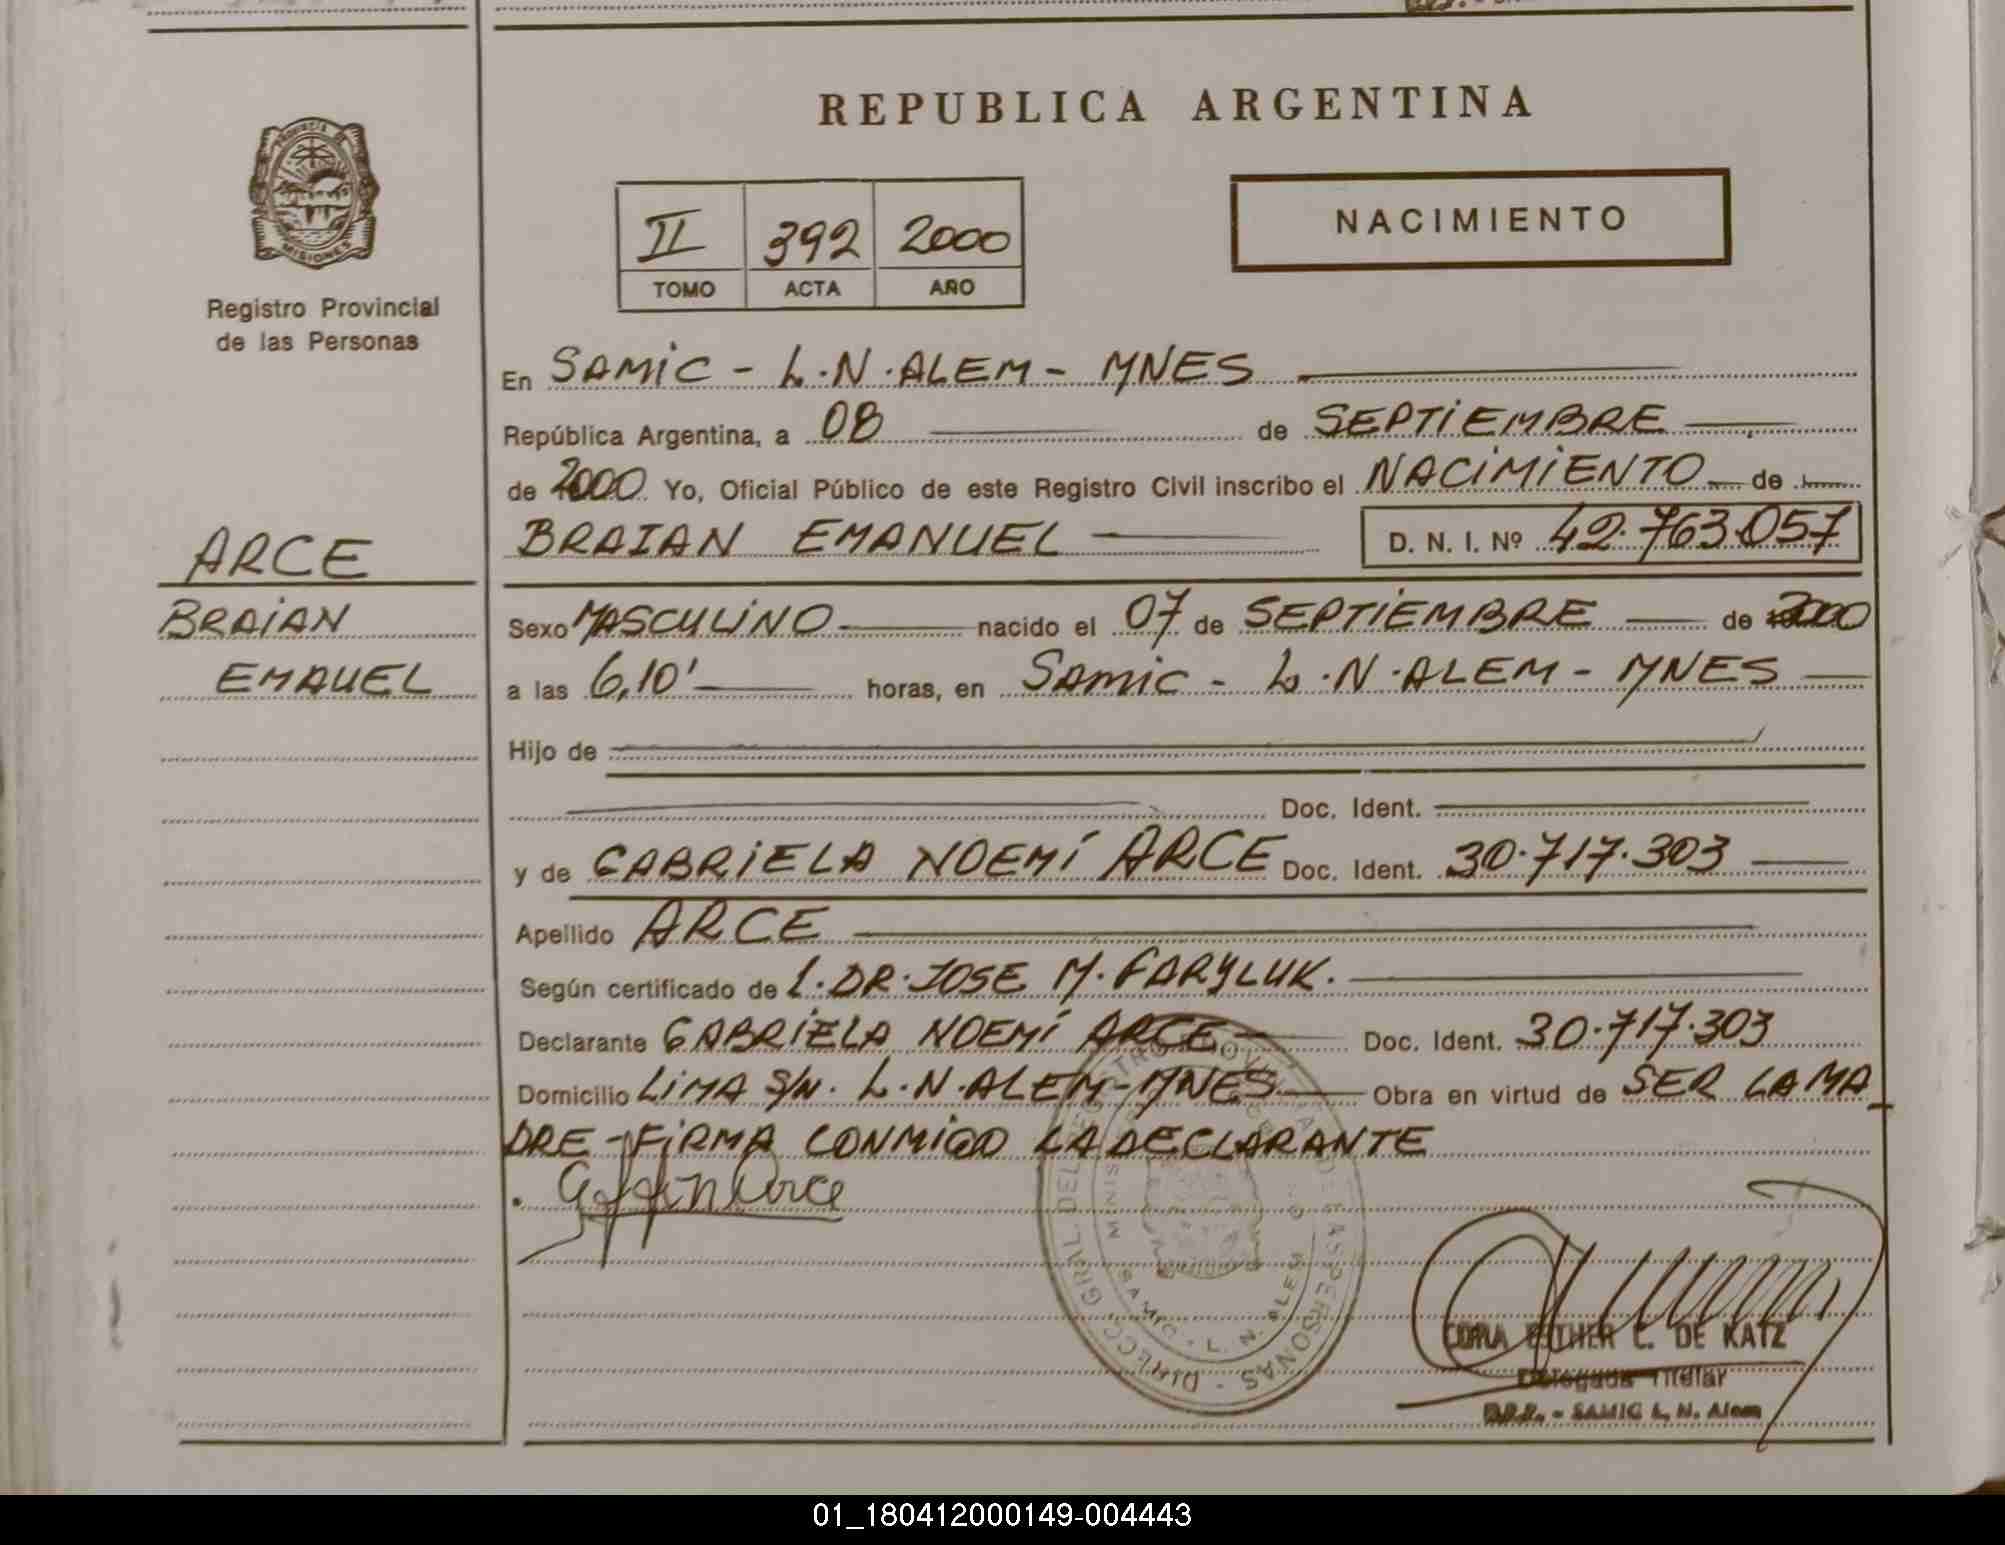 REPUBLICA ARGENTINA
PROVINCIA DE
MISIONES
Registro Provincial
de las Personas
NACIMIENTO
II 392 2000
TOMO ACTA AÑO
En SAMIC - L.N.ALEM - MNES
República Argentina, a 08 de SEPTIEMBRE
de 2000 Yo, Oficial Público de este Registro Civil inscribo el NACIMIENTO de
BRAIAN EMANUEL D. N. I. Nº 42.763.057
ARCE
BRAIAN
EMAUEL
Sexo MASCULINO nacido el 07 de SEPTIEMBRE de 2000
a las 6,10' horas, en SAMIC - L.N.ALEM - MNES
Hijo de
Doc. Ident.
y de GABRIELA NOEMÍ ARCE Doc. Ident. 30.717.303
Apellido ARCE
Según certificado de L.DR.JOSE M. FARYLUK.
Declarante GABRIELA NOEMÍ ARCE Doc. Ident. 30.717.303
Domicilio LIMA S/N. L.N.ALEM-MNES Obra en virtud de SER LA MA
DRE - FIRMA CONMIGO LA DECLARANTE
Arce
SAMIC - L. N. ALEM
CORA ESTHER C. DE KATZ
Delegada Titular
R.P.P. - SAMIC L. N. Alem
01_180412000149-004443